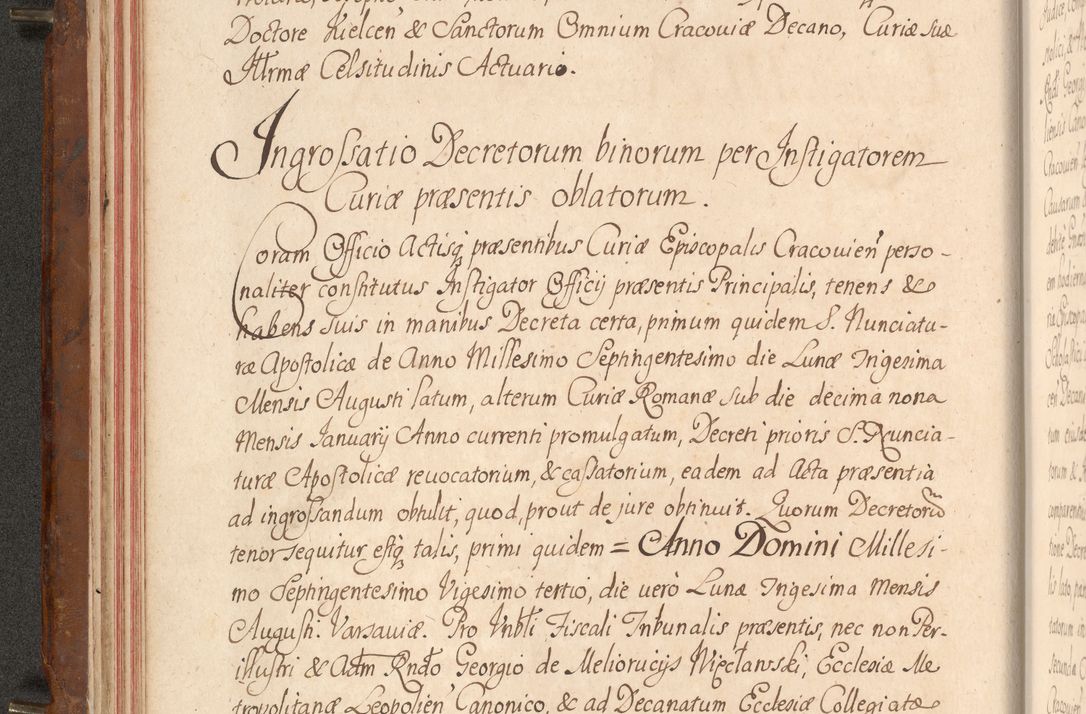 Doctore Kielcen & Sanctorum Omnium Cracoviæ Decano, Curiæ suæ
Illrmæ Celsitudinis Actuario.
Ingrossatio Decretorum binorum per Instigatorem
Curiæ præsentis oblatorum.
Coram Officio Actisq præsentibus Curiæ Episcopalis Cracovien perso-
naliter constitutus Instigator Officij præsentis Principalis, tenens &
habens suis in manibus Decreta certa, primum quidem S. Nunciatu-
ræ Apostolicæ de Anno Millesimo Septingentesimo die Lunæ Trigesima
Mensis Augusti latum, alterum Curiæ Romanæ sub die decima nona
Mensis Januarij Anno currenti promulgatum, Decreti prioris S. Nuncia-
turæ Apostolicæ revocatorium, & cassatorium, eadem ad Acta præsentia
ad ingrossandum obtulit, quod, prout de jure obtinuit. Quorum Decretorū
tenor sequitur estq talis, primi quidem = Anno Domini Millesi-
mo Septingentesimo Vigesimo tertio, die verò Lunæ Trigesima Mensis
Augusti. Varsaviæ. Pro Vnbli Fiscali Tribunalis præsentis, nec non Per-
illustri & Adm Rndo Georgio de Meliorucijs Więcławski, Ecclesiæ Me
tropolitanæ Leopolien Canonico, & ad Decanatum Ecclesiæ Collegiatæ